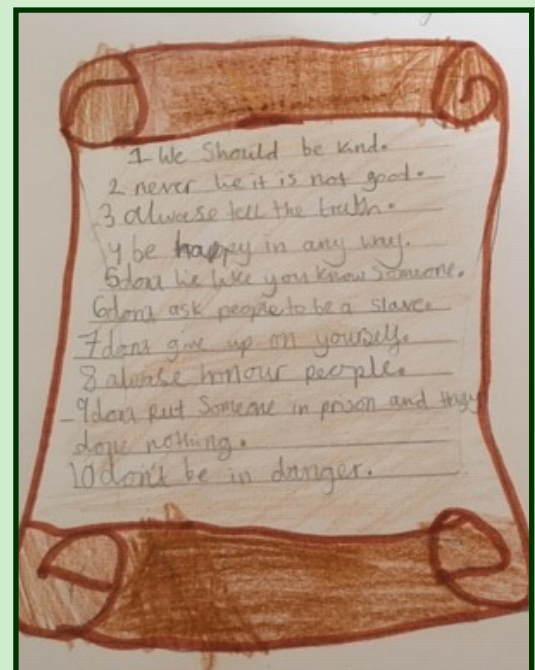 1 We Should be kind.
2 never lie it is not good.
3 alwase tell the truth.
4 be happy in any way.
5 dont lie like you know Someone.
6 dont ask people to be a slave.
7 dont give up on yourself.
8 alwase honour people.
9 dont put Someone in prison and they
done nothing.
10 don't be in danger.